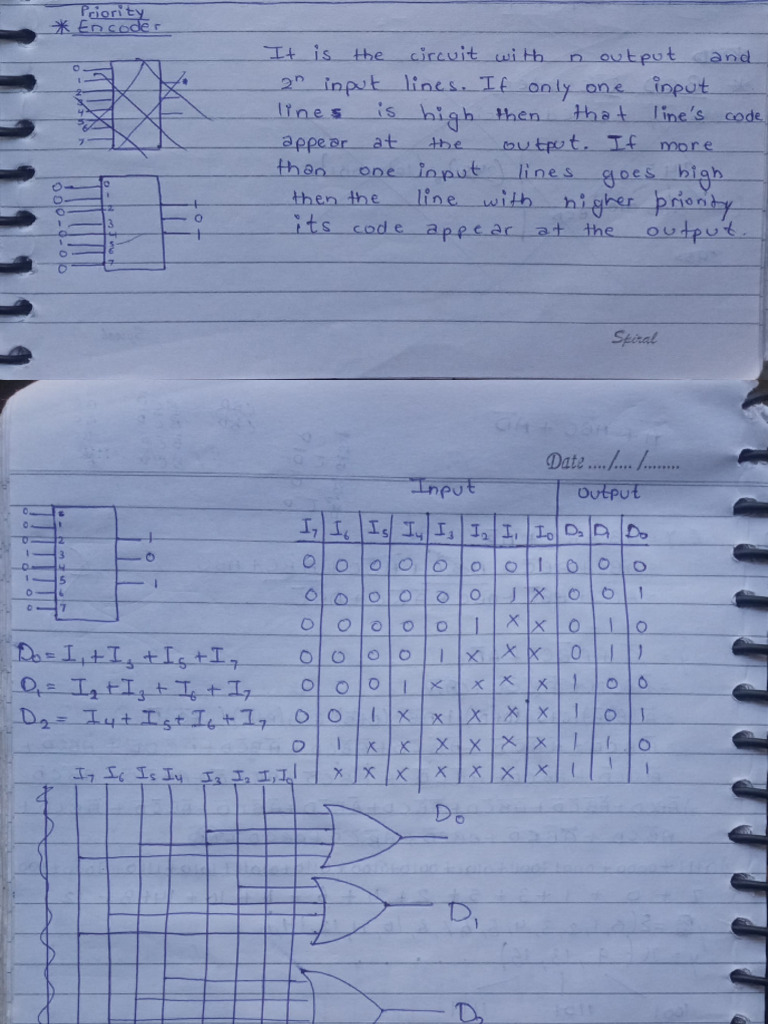 Priority
* Encoder
It is the circuit with n output and
2ⁿ input lines. If only one input
lines is high then that line's code
appear at the output. If more
than one input lines goes high
then the line with higher priority
its code appear at the output.
0
1
2
3
4
5
6
7
0 0
0 1
0 2
1 3
0 4
1 5
0 6
0 7
1
0
1
Spiral
Date ..../..../........
Input Output
I₇ I₆ I₅ I₄ I₃ I₂ I₁ I₀ D₂ D₁ D₀
0 0 0 0 0 0 0 1 0 0 0
0 0 0 0 0 0 1 x 0 0 1
0 0 0 0 0 1 x x 0 1 0
0 0 0 0 1 x x x 0 1 1
0 0 0 1 x x x x 1 0 0
0 0 1 x x x x x 1 0 1
0 1 x x x x x x 1 1 0
1 x x x x x x x 1 1 1
0 0
0 1
0 2
1 3
0 4
1 5
0 6
0 7
1
0
1
D₀ = I₁ + I₃ + I₅ + I₇
D₁ = I₂ + I₃ + I₆ + I₇
D₂ = I₄ + I₅ + I₆ + I₇
I₇ I₆ I₅ I₄ I₃ I₂ I₁ I₀
D₀
D₁
D₂